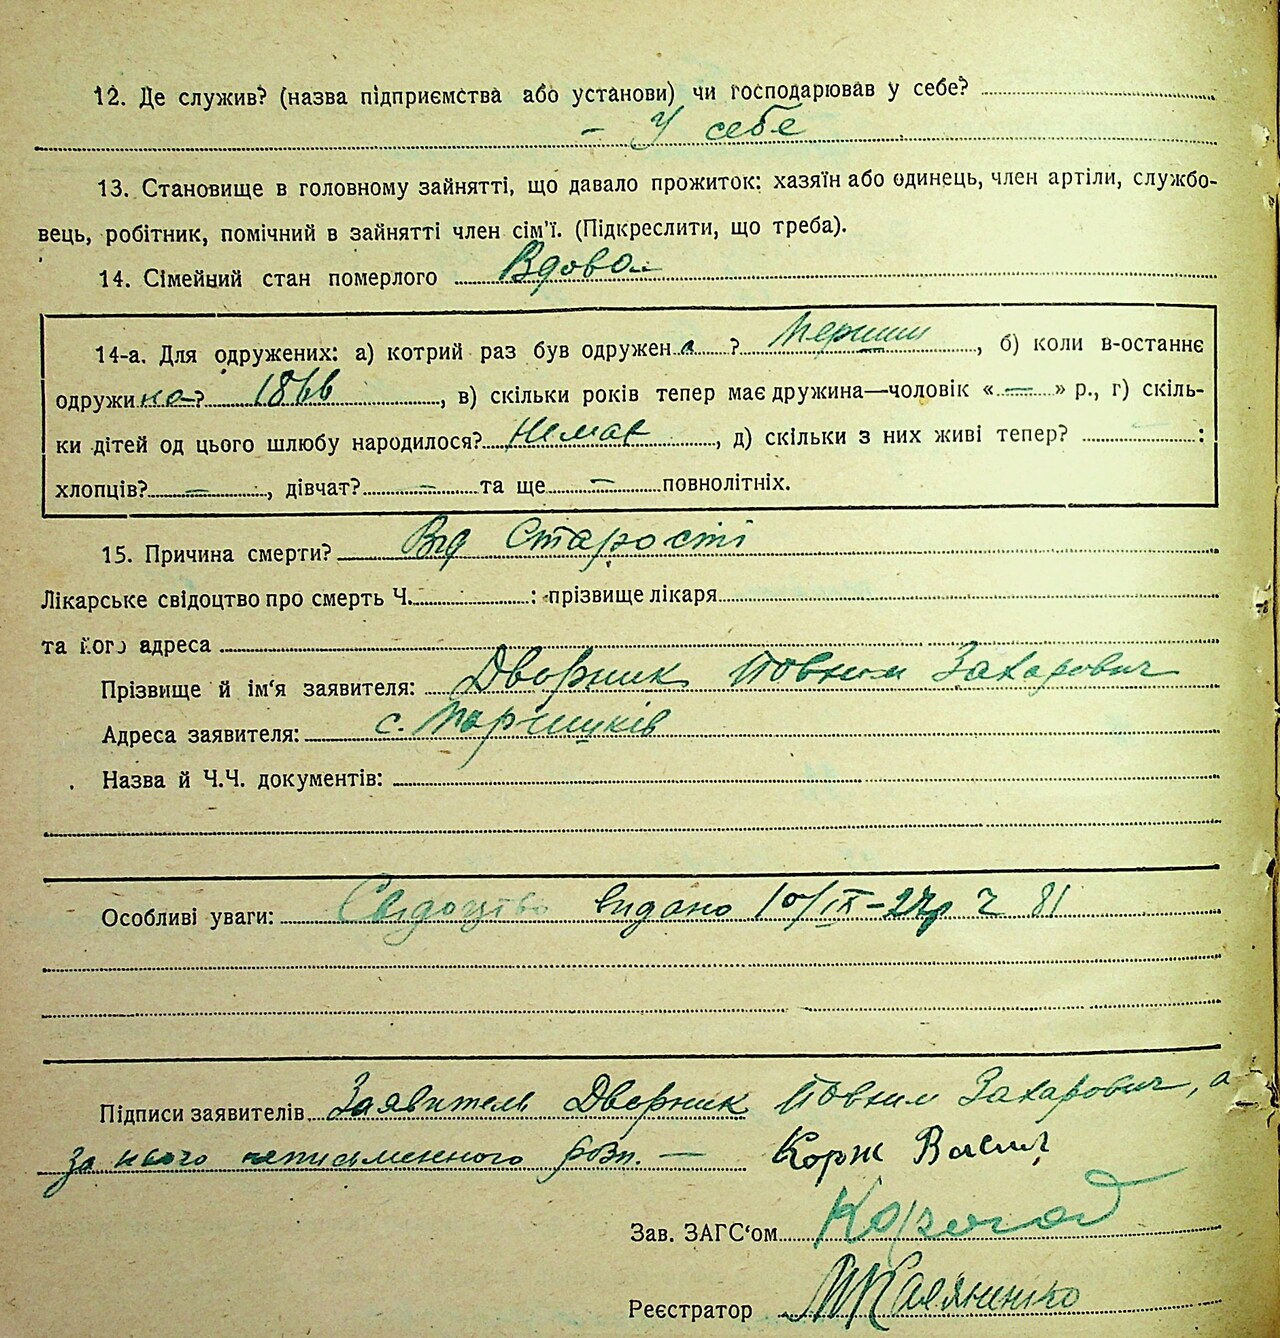 12. Де служив? (назва підприємства або установи) чи господарював у себе?
– У себе
13. Становище в головному зайнятті, що давало прожиток: хазяїн або одинець, член артіли, службо-
вець, робітник, помічний в зайнятті член сім’ї. (Підкреслити, що треба).
14. Сімейний стан померлого Вдова
14-а. Для одружених: а) котрий раз був одружен а ? Перший, б) коли в-останнє
одружи на? , в) скільки років тепер має дружина—чоловік «—» р., г) скіль-
ки дітей од цього шлюбу народилося? Немає, д) скільки з них живі тепер? :
хлопців? —, дівчат? — та ще — повнолітніх.
15. Причина смерти? Від Старості
Лікарське свідоцтво про смерть Ч. : прізвище лікаря
та його адреса
Прізвище й ім‘я заявителя: Дворник Захарович
Адреса заявителя: с.
Назва й Ч.Ч. документів:
Особливі уваги: Свідоцтво видано 10/IX–27р Ч 81
Підписи заявителів Заявитель Дворник Захарович, а
за нього неписьменного розп. — Корж
Зав. ЗАГС‘ом
Реєстратор